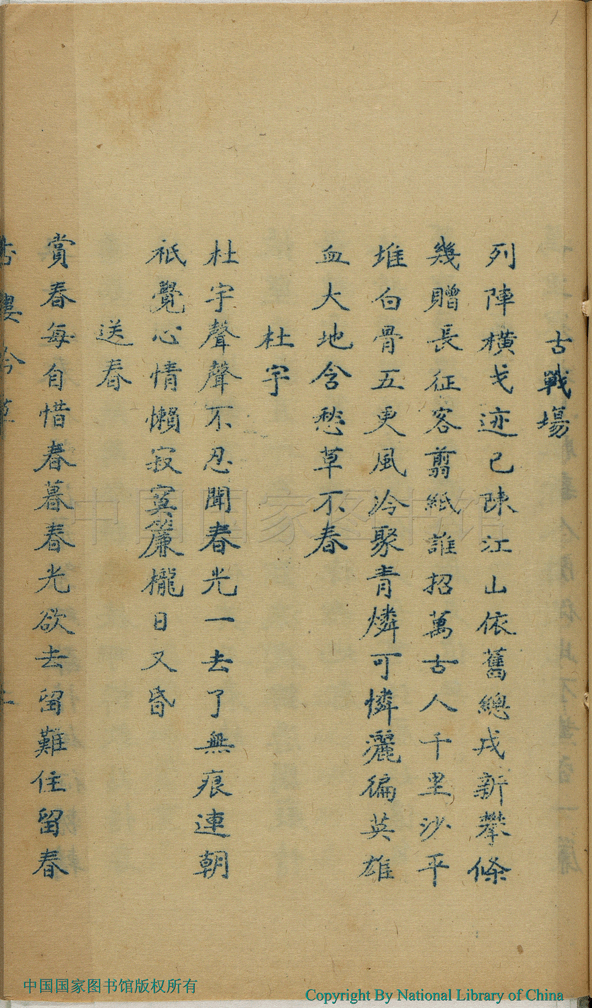 古戰場
列陣橫戈迹已陳江山依舊總戎新攀條
幾贈長征客翦紙誰招萬古人千里沙平
堆白骨五更風冷聚青燐可憐灑徧英雄
血大地含愁草不春
杜宇
杜宇聲聲不忍聞春光一去了無痕連朝
祇覺心情懶寂寞簾櫳日又昏
送春
賞春每自惜春暮春光欲去留難住留春
中国国家图书馆
中国国家图书馆版权所有
Copyright By National Library of China